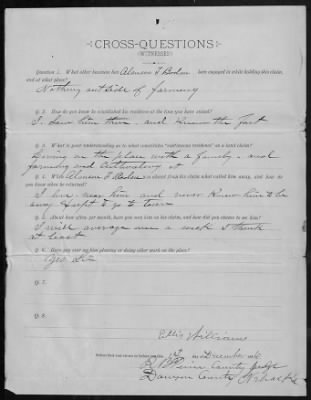 CROSS-QUESTIONS
(WITNESSES)
Question 1. What other business has Alonson F Bolen been engaged in while holding this claim,
and at what place?
Nothing outside of farming
Q. 2. How do you know he established his residence at the time you have stated?
I saw him there and know the fact
Q. 3. What is your understanding as to what constitutes "continuous residence" on a land claim?
Living on the place with a family and
farming and cultivating it
Q. 4. Was Alonson F Bolen absent from the claim what called him away, and how do
you know when he returned?
I live near him and never knew him to be
away except to go to town
Q. 5. About how often per month, have you been on his claim, and how did you chance to see him?
I will average once a week I think
at least
Q. 6. Have you ever seen him planting or doing other work on the place?
Yes Sir
Q. 7.
Q. 8.
Ellis Williams
Subscribed and sworn to before me December
County Judge
Dawson County Nebraska